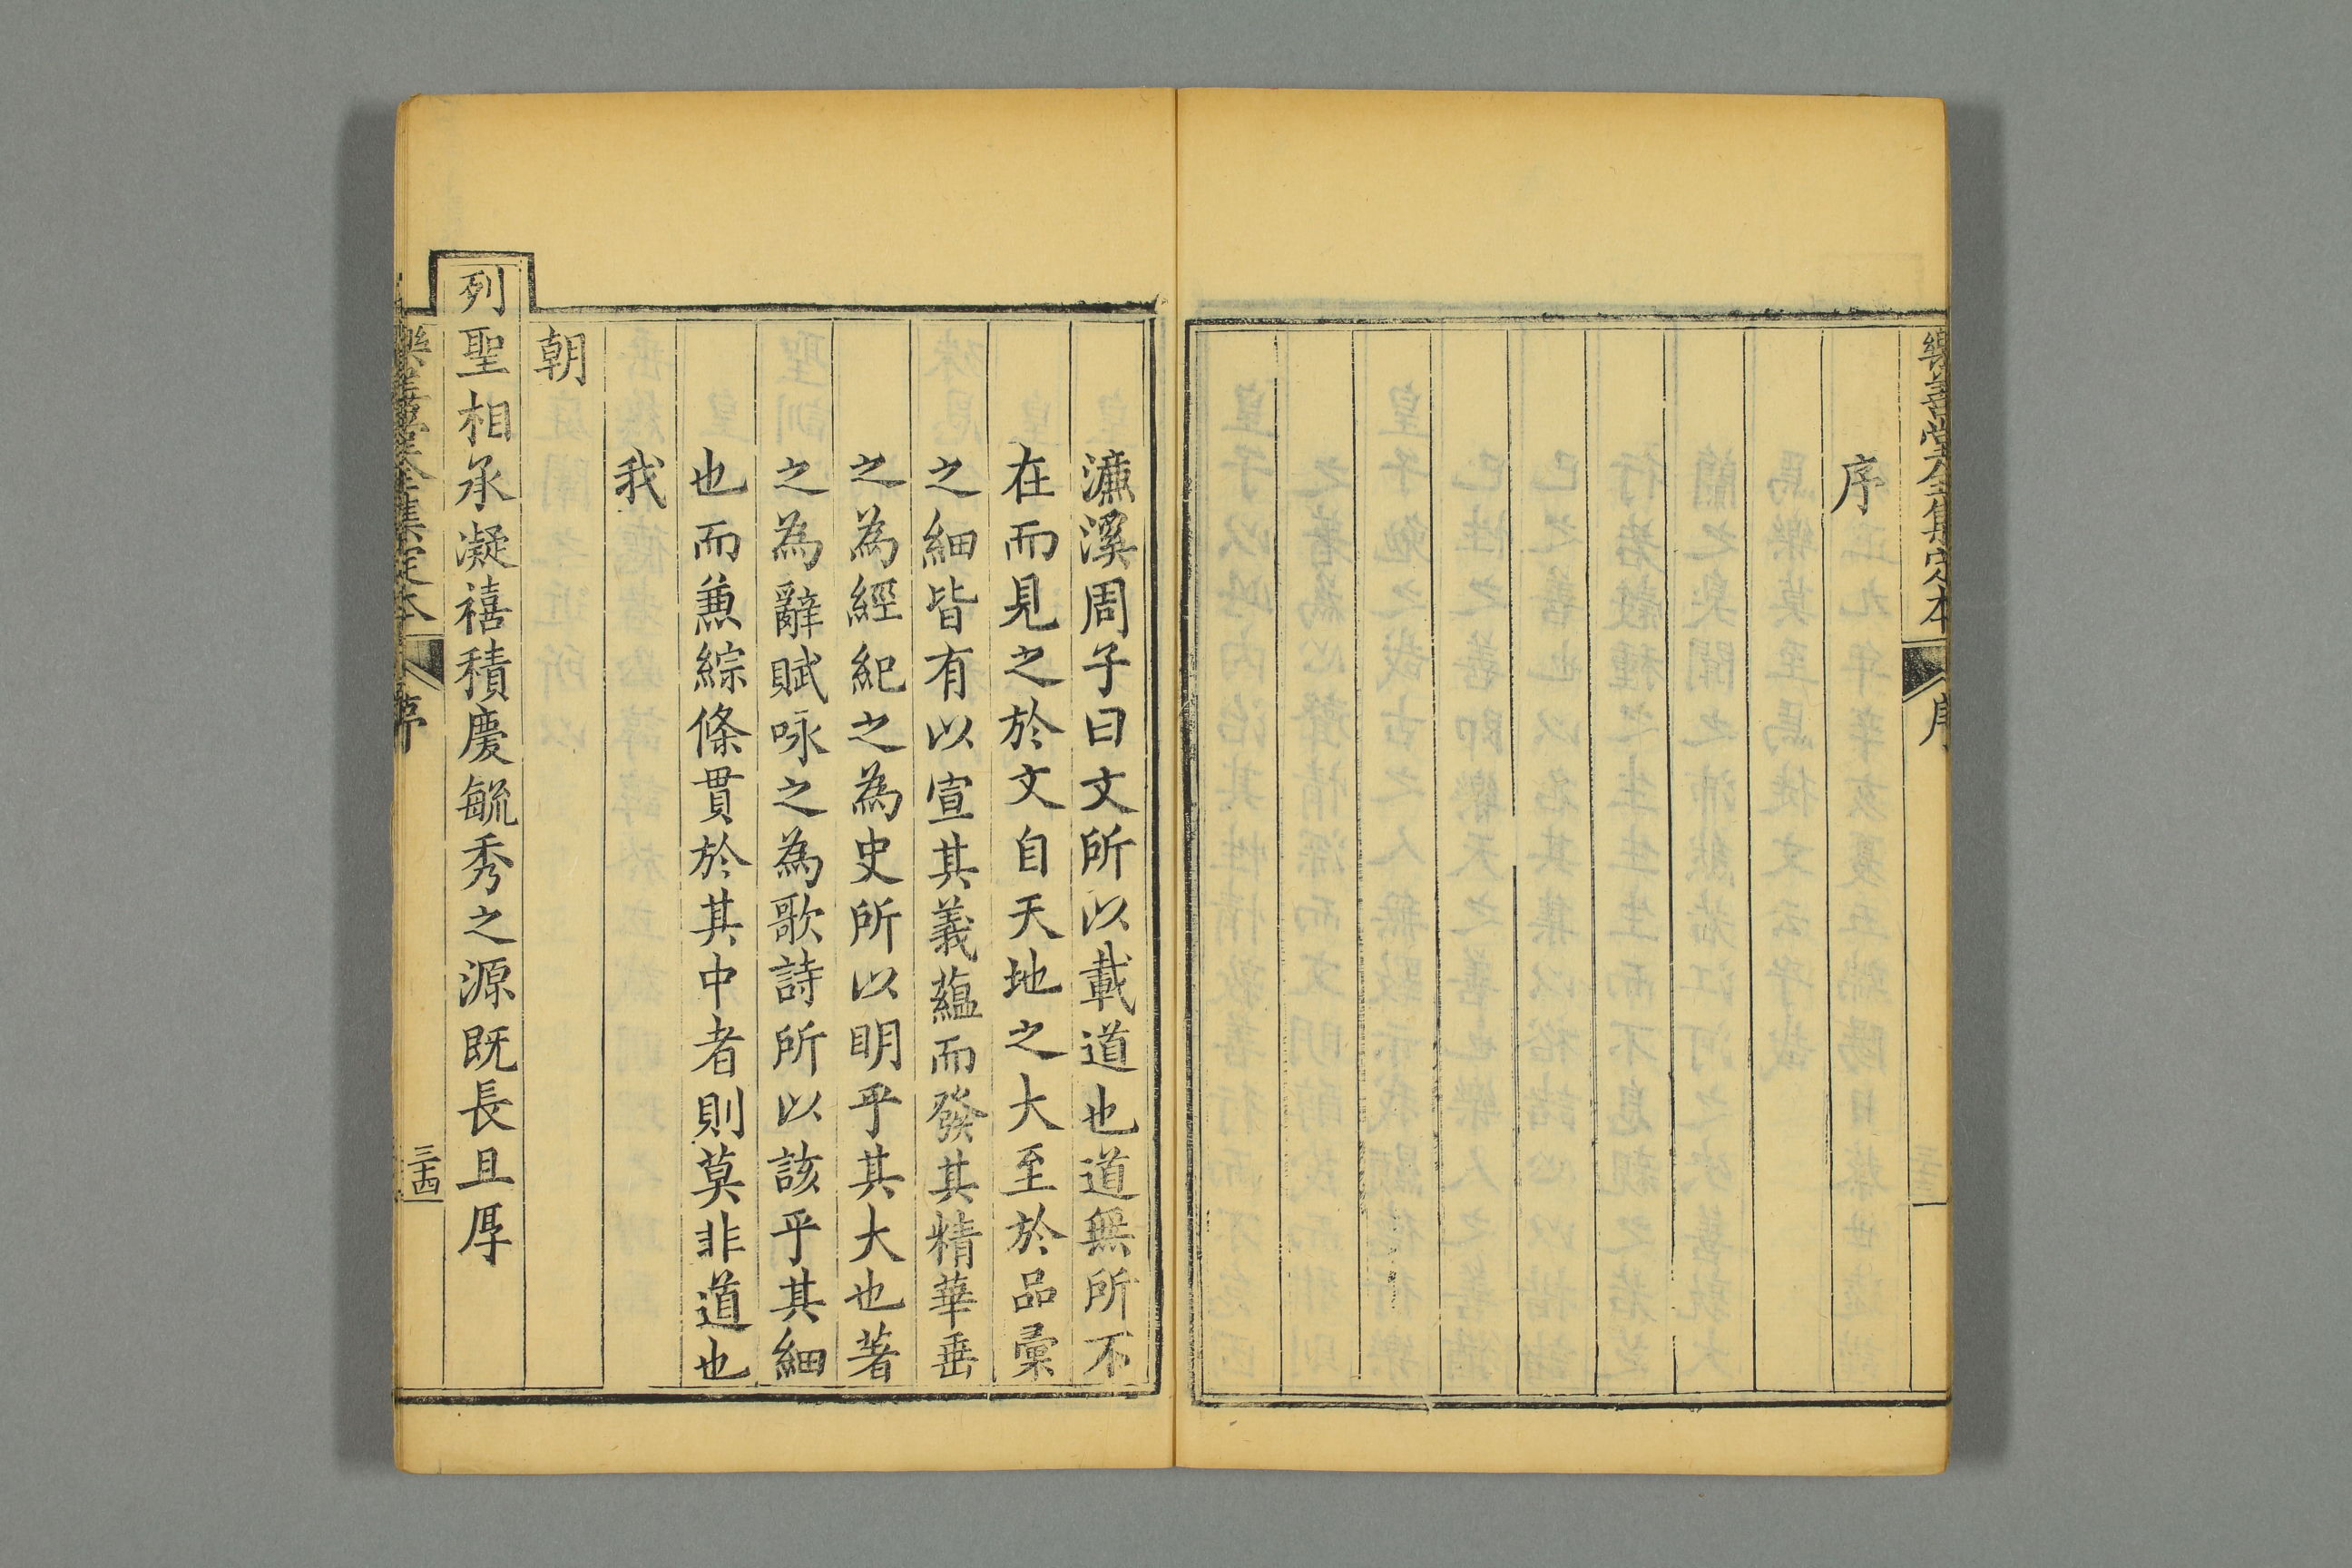 樂善堂全集定本
序
序
濂溪周子曰文所以載道也道無所不
在而見之於文自天地之大至於品彙
之細皆有以宣其義蘊而發其精華垂
之為經紀之為史所以明乎其大也著
之為辭賦咏之為歌詩所以該乎其細
也而兼綜條貫於其中者則莫非道也
我
朝
列聖相承凝禧積慶毓秀之源既長且厚
樂善堂全集定本
序
三十四